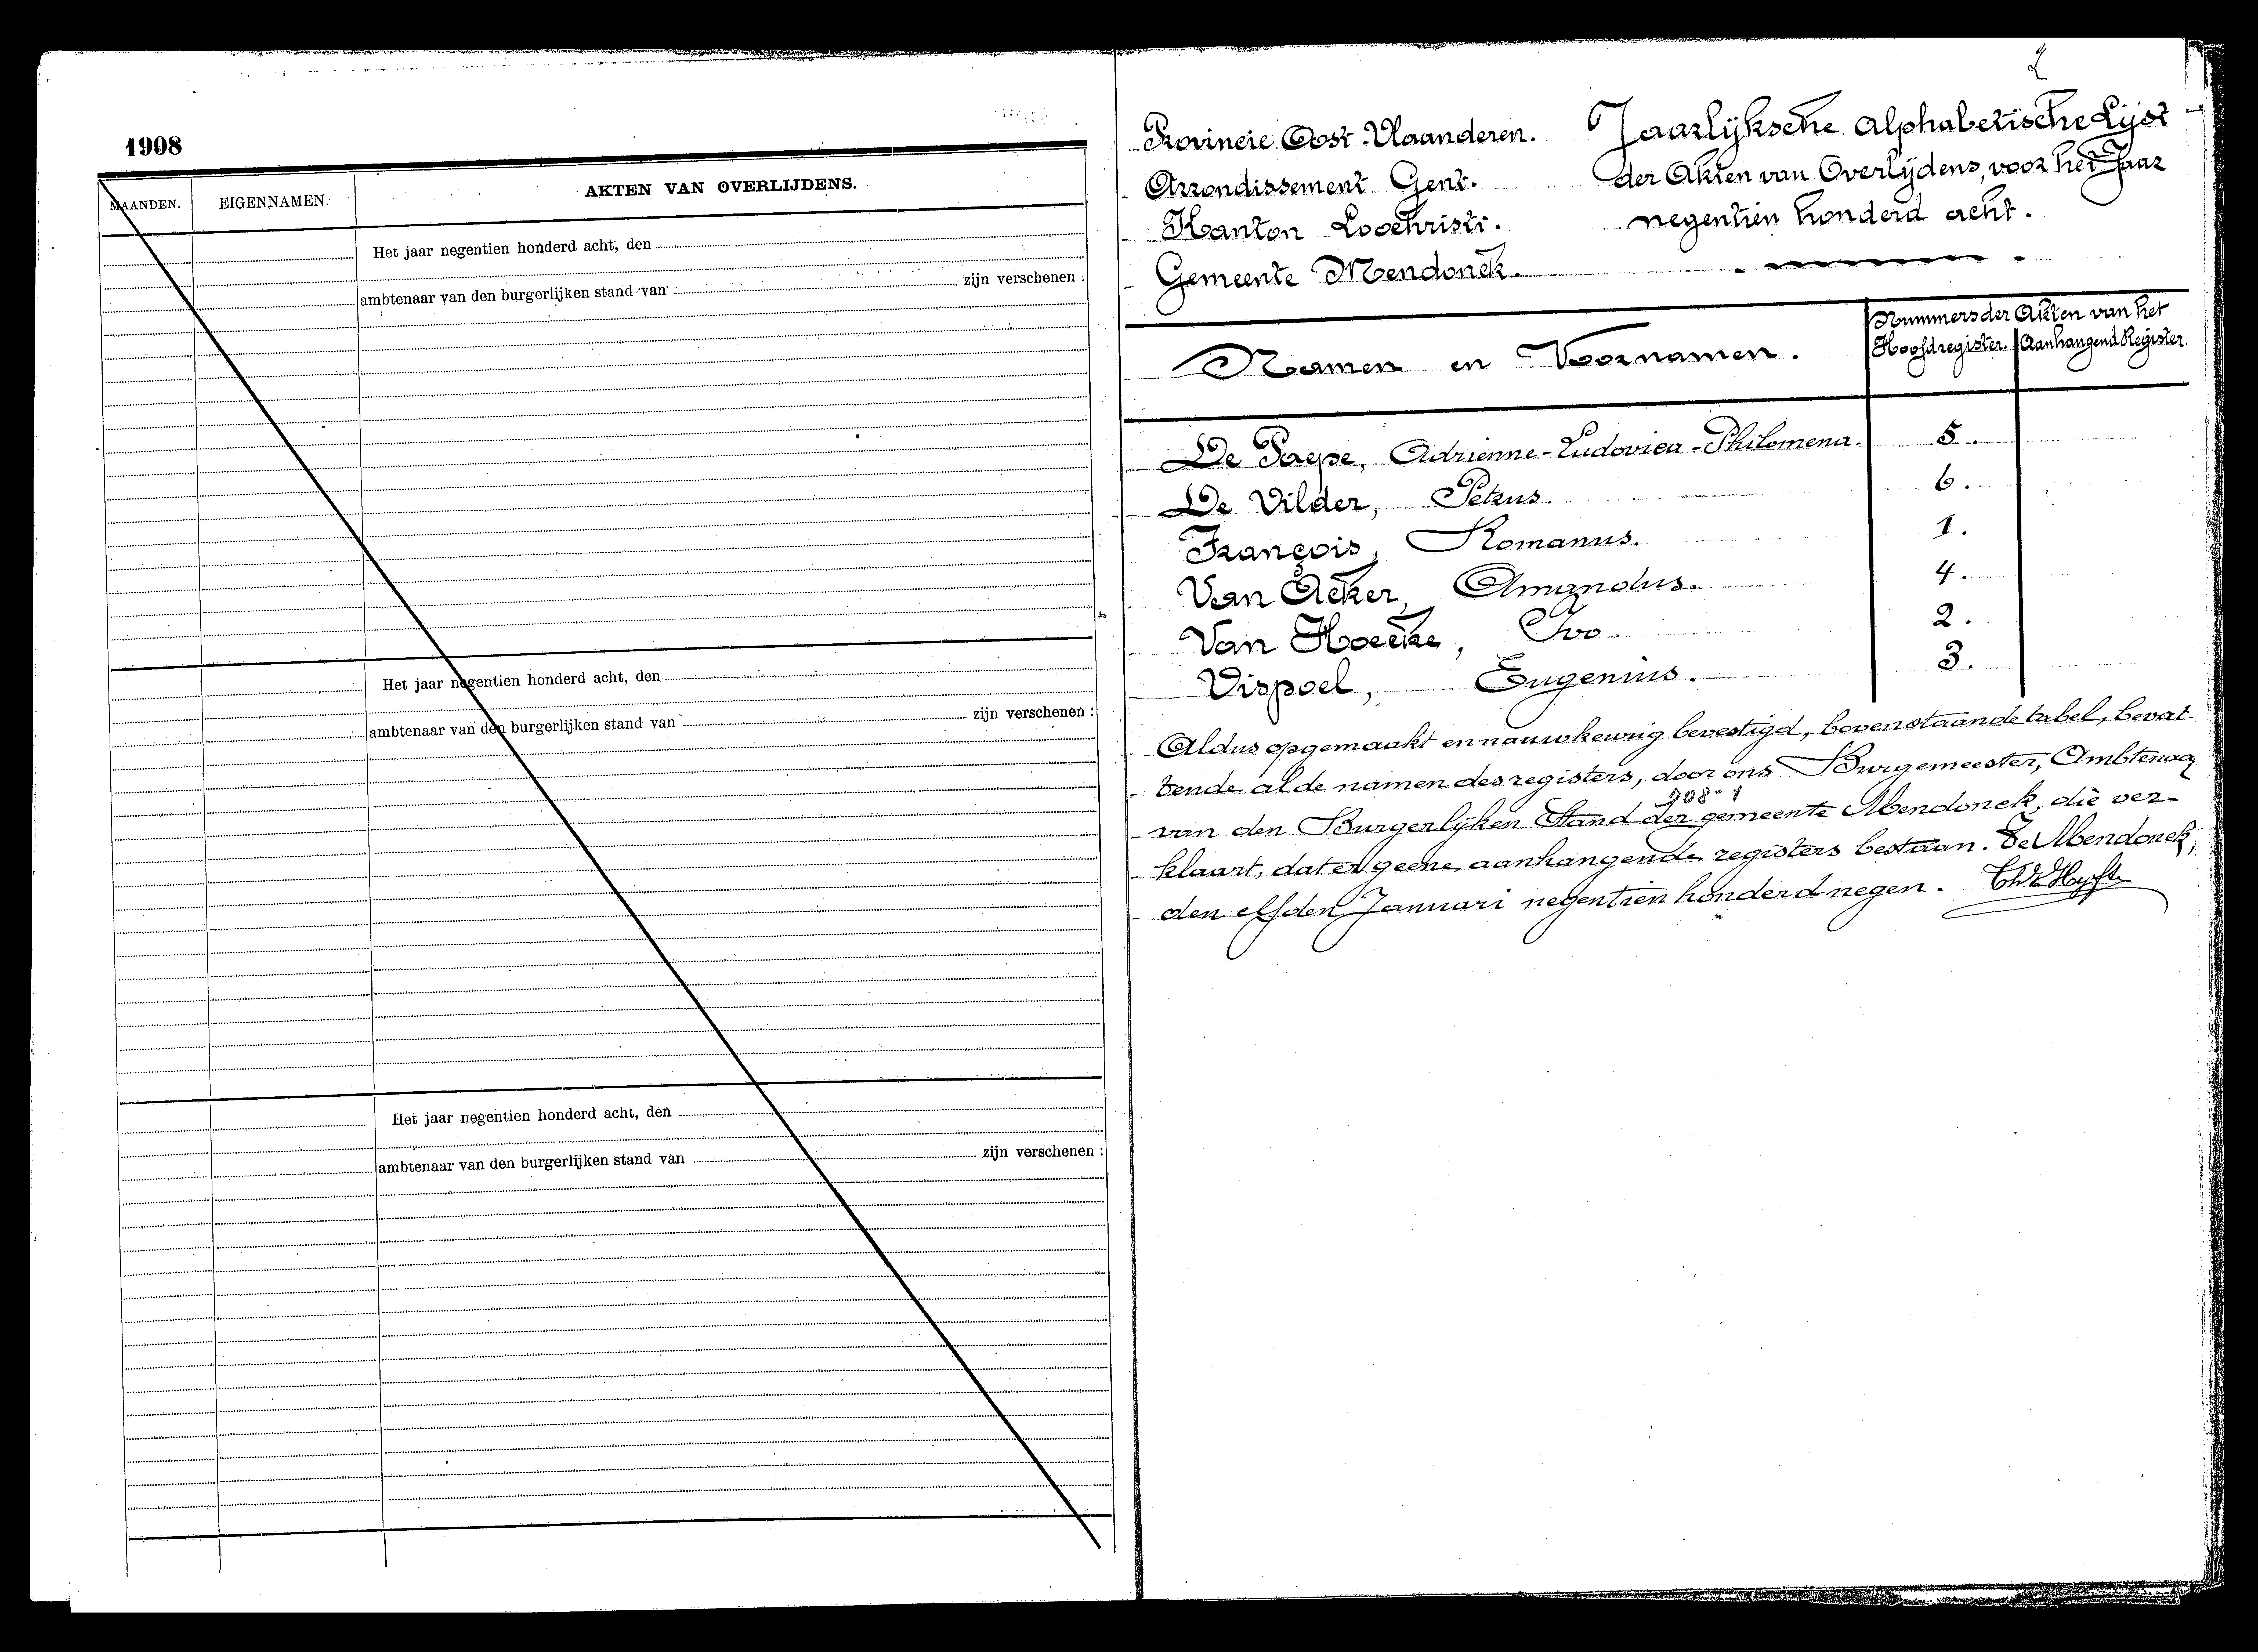 1908
MAANDEN.
EIGENNAMEN.
AKTEN VAN OVERLIJDENS.
Het jaar negentien honderd acht, den
ambtenaar van den burgerlijken stand van zijn verschenen :
Het jaar negentien honderd acht, den
ambtenaar van den burgerlijken stand van zijn verschenen :
Het jaar negentien honderd acht, den
ambtenaar van den burgerlijken stand van zijn verschenen :
2
Provincie Oost-Vlaanderen.
Arrondissement Gent.
Kanton Loochristi.
Gemeente Mendonck.
Jaarlijksche Alphabetische Lijst
der Akten van Overlijdens, voor het Jaar
negentien honderd acht.
Namen en Voornamen.
Nummers der Akten van het
Hoofdregister. Aanhangend Register.
De Paepe, Adrienne-Ludovica-Philomena. 5.
De Vilder, Petrus. 6.
François, Romanus. 1.
Van Acker, Amandus. 4.
Van Hoecke, Ivo. 2.
Vispoel, Eugenius. 3.
Aldus opgemaakt en nauwkeurig bevestigd, bovenstaande tabel, bevat-
tende al de namen des registers, door ons Burgemeester, Ambtenaar
908-1
van den Burgerlijken Stand der gemeente Mendonck, die ver-
klaart, dat er geene aanhangende registers bestaan. Te Mendonck,
den elfden Januari negentien honderd negen.